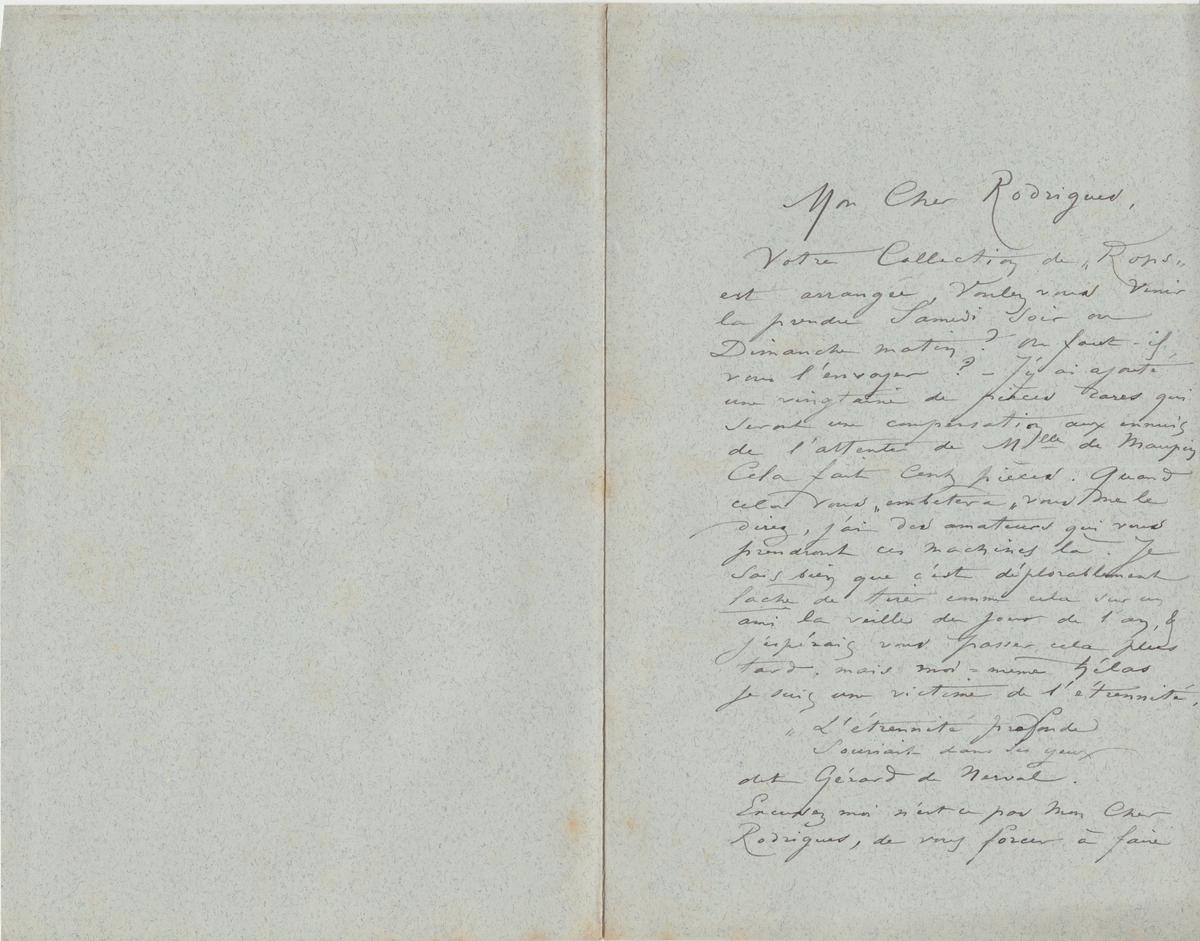 Mon Cher Rodrigues,
Votre Collection de „Rops„
est arrangée, Voulez vous Venir
la prendre Samedi Soir ou
Dimanche matin ? ou faut-il
vous l'envoyer ? – J'y ai ajouté
une vingtaine de pièces rares qui
seront une compensation aux ennuis
de l'attente de Mlle de Maupin
Cela fait Cent pièces. Quand
cela vous „embetera„ vous me le
direz, j'ai des amateurs qui vous
prendront ces machines là. Je
sais bien que c'est déplorablement
lache de tirer comme cela sur un
ami la veille du jour de l'an, &
j'espérais vous passer cela plus
tard, mais moi-même hélas
je suis une victime de l'étrennité,
„ L'étrennité profonde
Souriait dans ses yeux
dit Gérard de Nerval.
Excusez moi n'est ce pas Mon Cher
Rodrigues, de vous forcer à faire